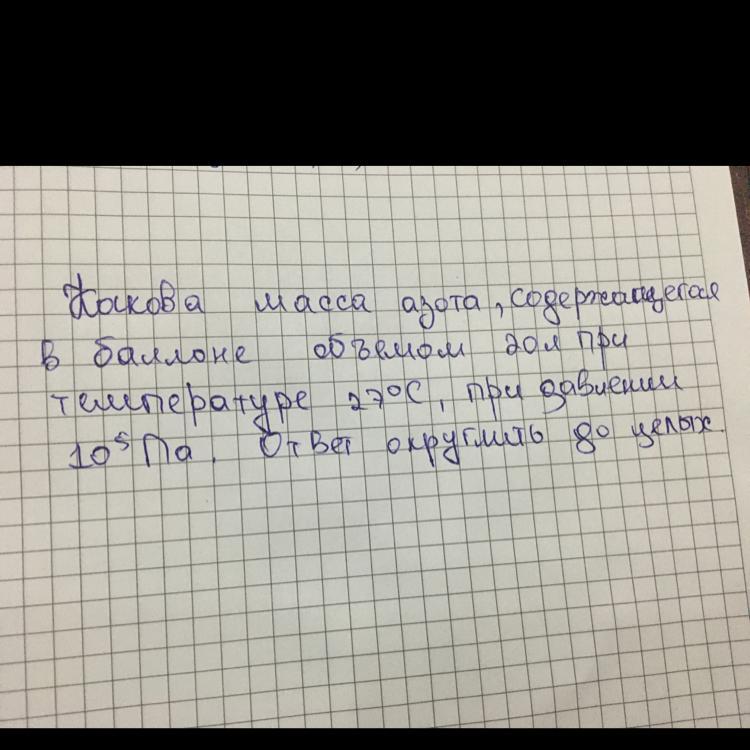 Какова масса азота, содержащегося
в баллоне объемом 20л при
температуре 27°C, при давлении
10⁵ Па. Ответ округлить до целых.